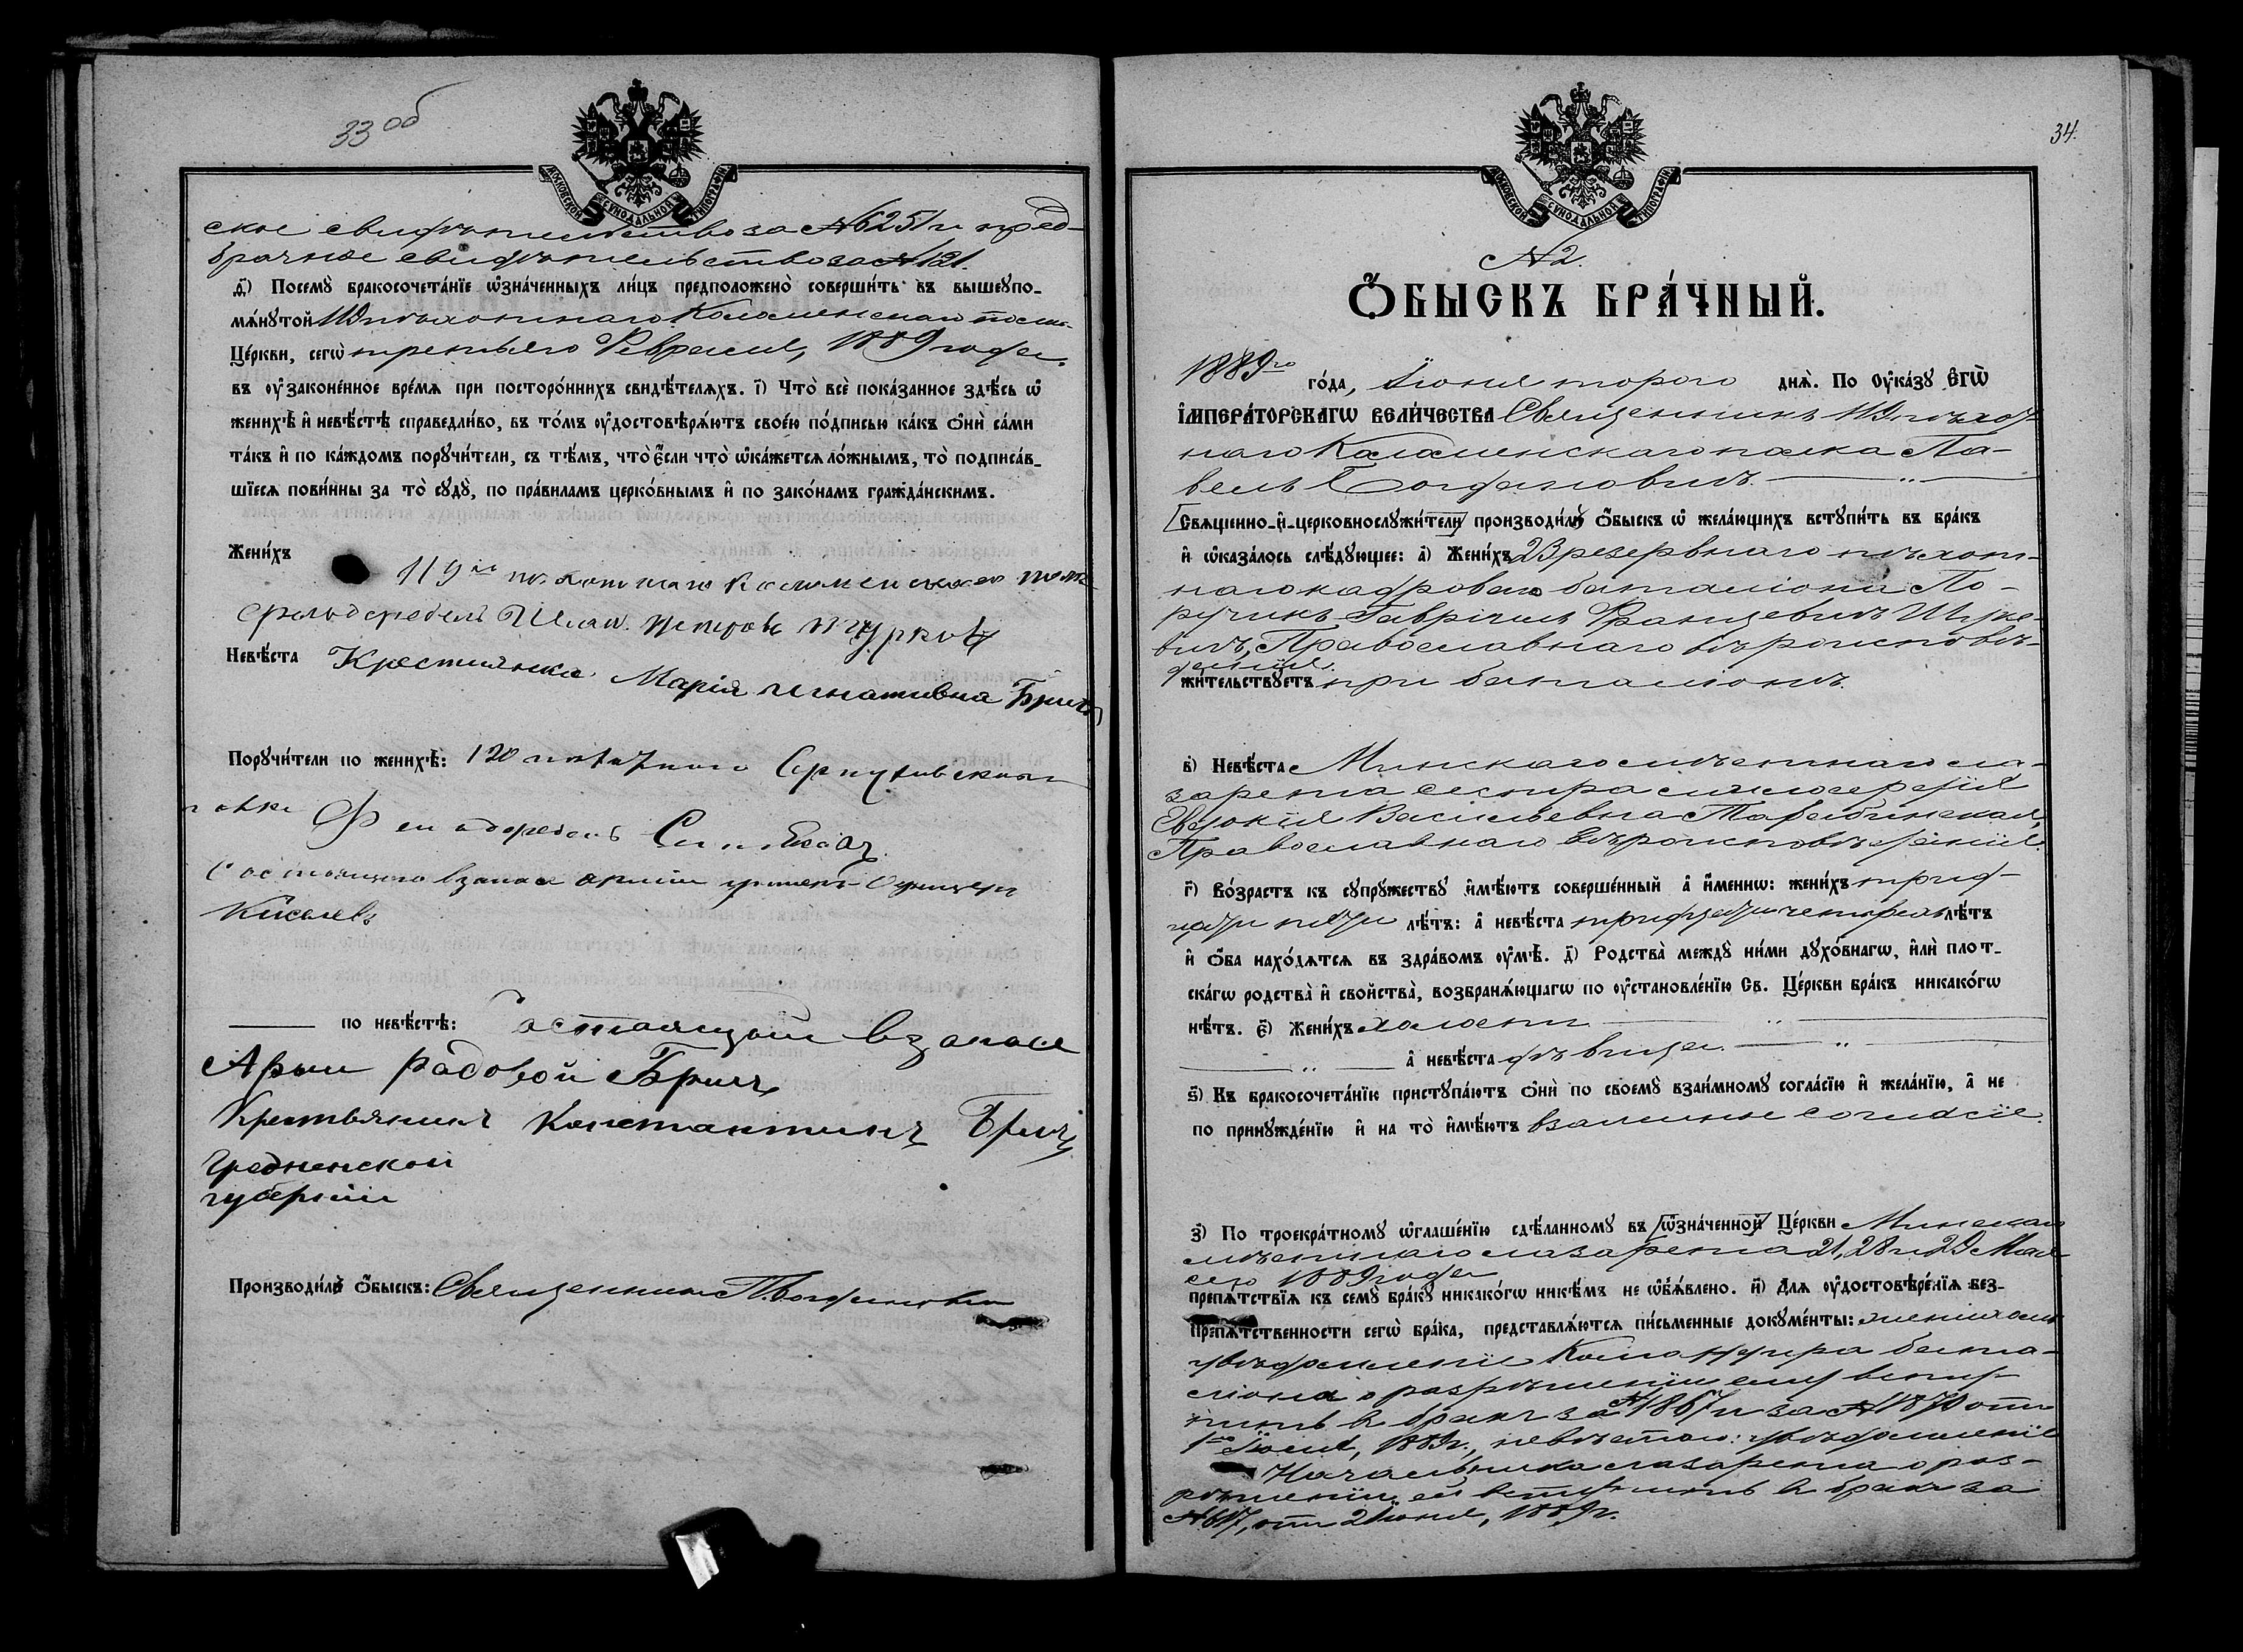 33 об
МОСКОВСКОЙ СѴНОДАЛЬНОЙ ТИПОГРАФІИ
ское свидѣтельство за №6251 и пред-
брачное свидѣтельство за №121.
д҃) Посемꙋ̀ бракосочета́нїе ѡ҆зна́ченныхъ ли́цъ предположено̀ соверши́ть въ вышеꙋпо-
мѧ́нꙋтой 119 пѣхотнаго Коломенскаго полка
Це́ркви, сегѡ̀ третьяго Февраля, 1889 года.
въ ѹ҆зако́нéнное вре́мѧ при посторо́ннихъ свидѣ́телѧхъ. і҃) Что̀ всѐ пока́занное здѣ́сь ѡ҆
женихѣ̀ и҆ невѣ́стѣ справедли́во, въ то́мъ ѹ҆достовѣрѧ́ютъ свое́ю по́дписью ка́къ ѻ҆нѝ са́ми
та́къ и҆ по ка́ждомъ порꙋчи́тели, съ тѣ́мъ, что̀ є҆́сли что̀ ѡ҆ка́жетсѧ ло́жнымъ, то̀ подписа́в-
шїесѧ пови́нны за то̀ сꙋдꙋ̀, по пра́виламъ церко́внымъ и҆ по зако́намъ гражда́нскимъ.
Жени́хъ
119го пѣхотнаго Коломенскаго полка
фельдфебель
Невѣ́ста Крестьянка Марія Игнативна Бричъ
Порꙋчи́тели по женихѣ̀: 120 пѣхотнаго Серпуховскаго
полка Фельдфебель
Состоящего в запасе армии унтеръ-Офицеръ
Киселевъ
по невѣ́стѣ: Состоящий в запасе
Армии рядовой Бричъ
Крестьянинъ Константинъ Бричъ
Гродненской
губернии
Производи́лъ ѻ҆́быскъ: Священникъ П. Богдановичъ
34.
МОСКОВСКОЙ СѴНОДАЛЬНОЙ ТИПОГРАФІИ
№2.
Ѻ҆́БЫСКЪ БРА́ЧНЫЙ.
1889го го́да, Іюня торого днѧ̀. По ѹ҆ка́зꙋ Є҆ГѠ̀
І҆МПЕРА́ТОРСКАГѠ ВЕЛИ́ЧЕСТВА Священникъ 119 пѣхот-
наго Коломенскаго полка Па-
велъ Богдановичъ.
Свѧще́нно-и҆-церковнослꙋжи́тели производи́лъ ѻ҆́быскъ ѡ҆ жела́ющихъ встꙋпи́ть въ бра́къ
и҆ ѡ҆каза́лось слѣ́дꙋющее: а҃) Жени́хъ 23 резервнаго пѣхот-
наго кадроваго баталіона По-
ручикъ Гавріилъ Францевичъ
Православнаго вѣроисповѣ-
данія.
жи́тельствꙋетъ при баталіонѣ.
в҃) Невѣ́ста Минскаго мѣстнаго ла-
зарета сестра милосердія
Евдокія Васильевна
Православнаго вѣроисповѣданія.
г҃) Во́зрастъ къ сꙋпрꙋ́жествꙋ и҆мѣ́ютъ соверше́нный а҆ и҆́менно: жени́хъ трид-
цати пяти лѣ́тъ: а҆ невѣ́ста тридцати четырехъ лѣ́тъ
и҆ ѻ҆́ба нахо́дѧтсѧ въ здра́вомъ ѹ҆мѣ̀. д҃) Родства̀ междꙋ̀ ни́ми дꙋхо́внагѡ, и҆лѝ плот-
ска́гѡ родства̀ и҆ сво́йства̀, возбранѧ́ющагѡ по ѹ҆становле́нїю Св. Це́ркви бра́къ никако́гѡ
нѣ́тъ. є҃) Жени́хъ холостъ
а҆ невѣ́ста дѣвица.
ѕ҃) Къ бракосочета́нїю пристꙋпа́ютъ ѻ҆нѝ по своемꙋ̀ взаи́мномꙋ согла́сїю и҆ жела́нїю, а҆ не
по принꙋжде́нїю и҆ на то̀ и҆мѣ́ютъ взаимное согласіе.
з҃) По троекра́тномꙋ ѡ҆глаше́нїю сдѣ́ланномꙋ въ ѡ҆зна́ченной Це́ркви Минскаго
мѣстнаго лазарета 21, 28 и 29 Мая
сего 1889 года
препѧ́тствїѧ къ семꙋ̀ бра́кꙋ никако́гѡ никѣ́мъ не ѡ҆б̾ѧ́влено. и҃) Длѧ ѹ҆достовѣре́нїѧ без-
препѧ́тственности сегѡ̀ бра́ка, представлѧ́ютсѧ пи́сьменные докꙋме́нты: женихомъ
увѣдомленіе Командира бата-
ліона о разрѣшеніи ему всту-
пить въ бракъ за №1867 и за №1870 отъ
1го Іюня, 1889г., невѣстою: увѣдомленіе
Начальника лазарета о раз-
рѣшеніи ей вступить въ бракъ за
№617, отъ 2 Іюня, 1889г.